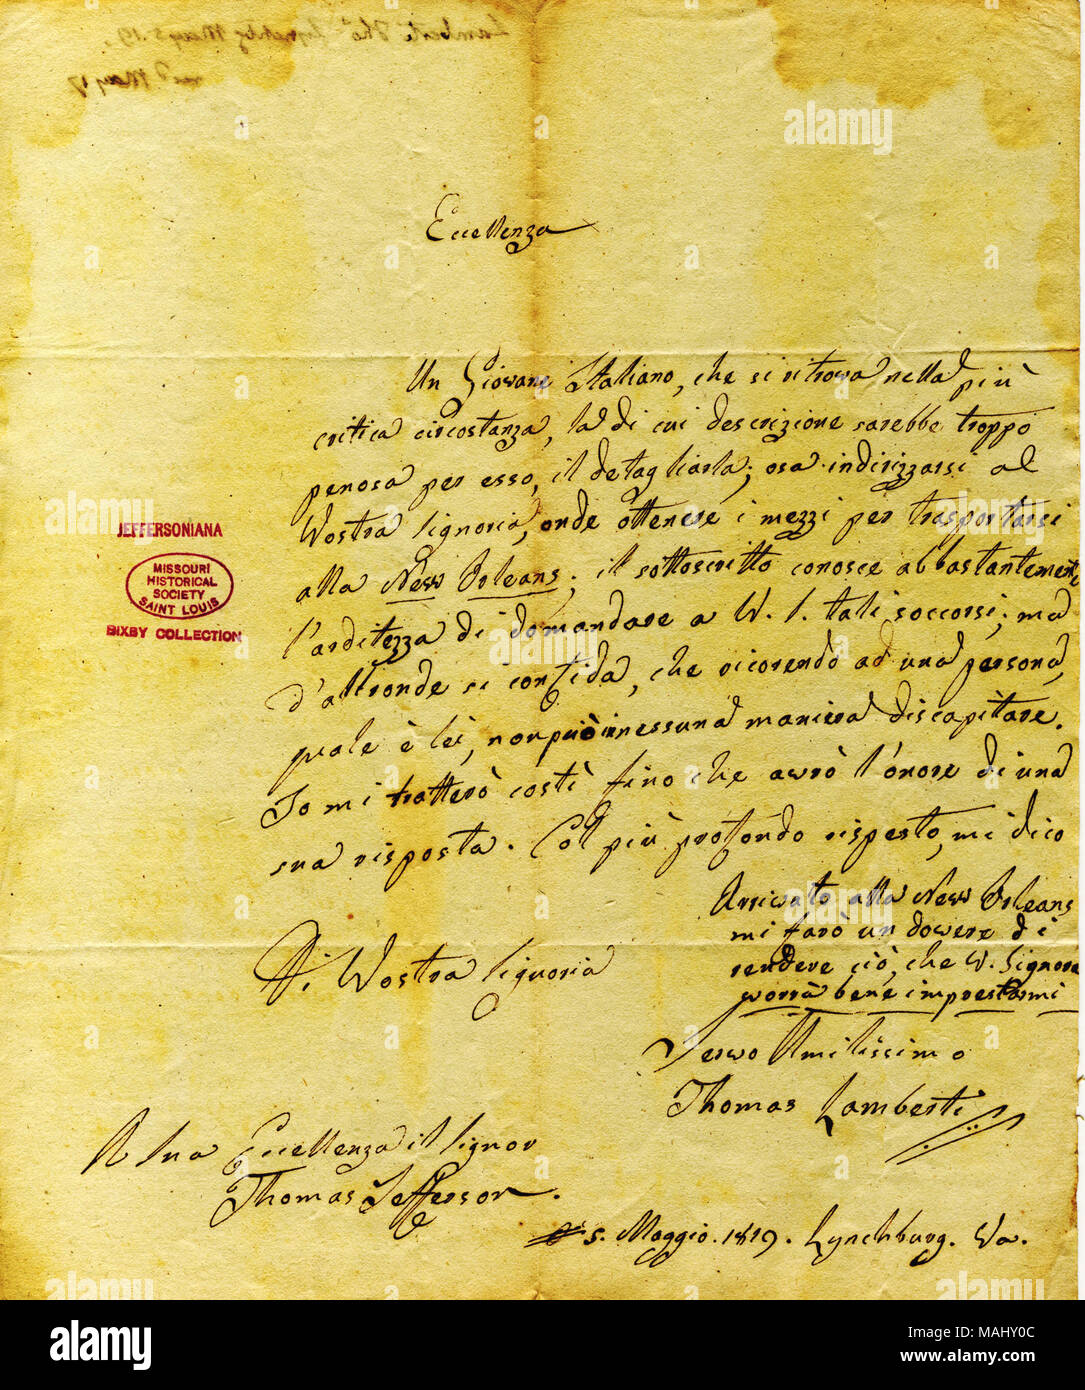 Lamberti Thoˢ Lynchbg May 5. 19.
recd May 17
Eccellenza
Un Giovane Italiano, che si ritrova nella più
critica circostanza, la di cui descrizione sarebbe troppo
penosa per esso, il detagliarla; osa indirizzarsi al
Wostra Signoria, onde ottenere i mezzi per trasportarsi
alla New Orleans; il sottoscritto conosce abbastantemente
l'arditezza di domandare a W. S. tali soccorsi; ma
d'altronde si confida, che ricorendo ad una persona,
quale è lei, non può in nessuna maniera discapitare.
Io mi tratterò costì fino che awrò l'onore di una
sua risposta. Col più profondo rispesto, mi dico
Arrivato alla New Orleans
mi farò un dowere di
rendere ciò, che W. Signora
worrà bene imprestarmi
Di Wostra Signoria
Serwo Umilissimo
Thomas Lamberti
A Sua Eccellenza il Signor
Thomas Jefferson.
5. Maggio. 1819. Lynchburg. Wa.
JEFFERSONIANA
MISSOURI
HISTORICAL
SOCIETY
SAINT LOUIS
BIXBY COLLECTION
alamy
Image ID: MAHY0C
www.alamy.com